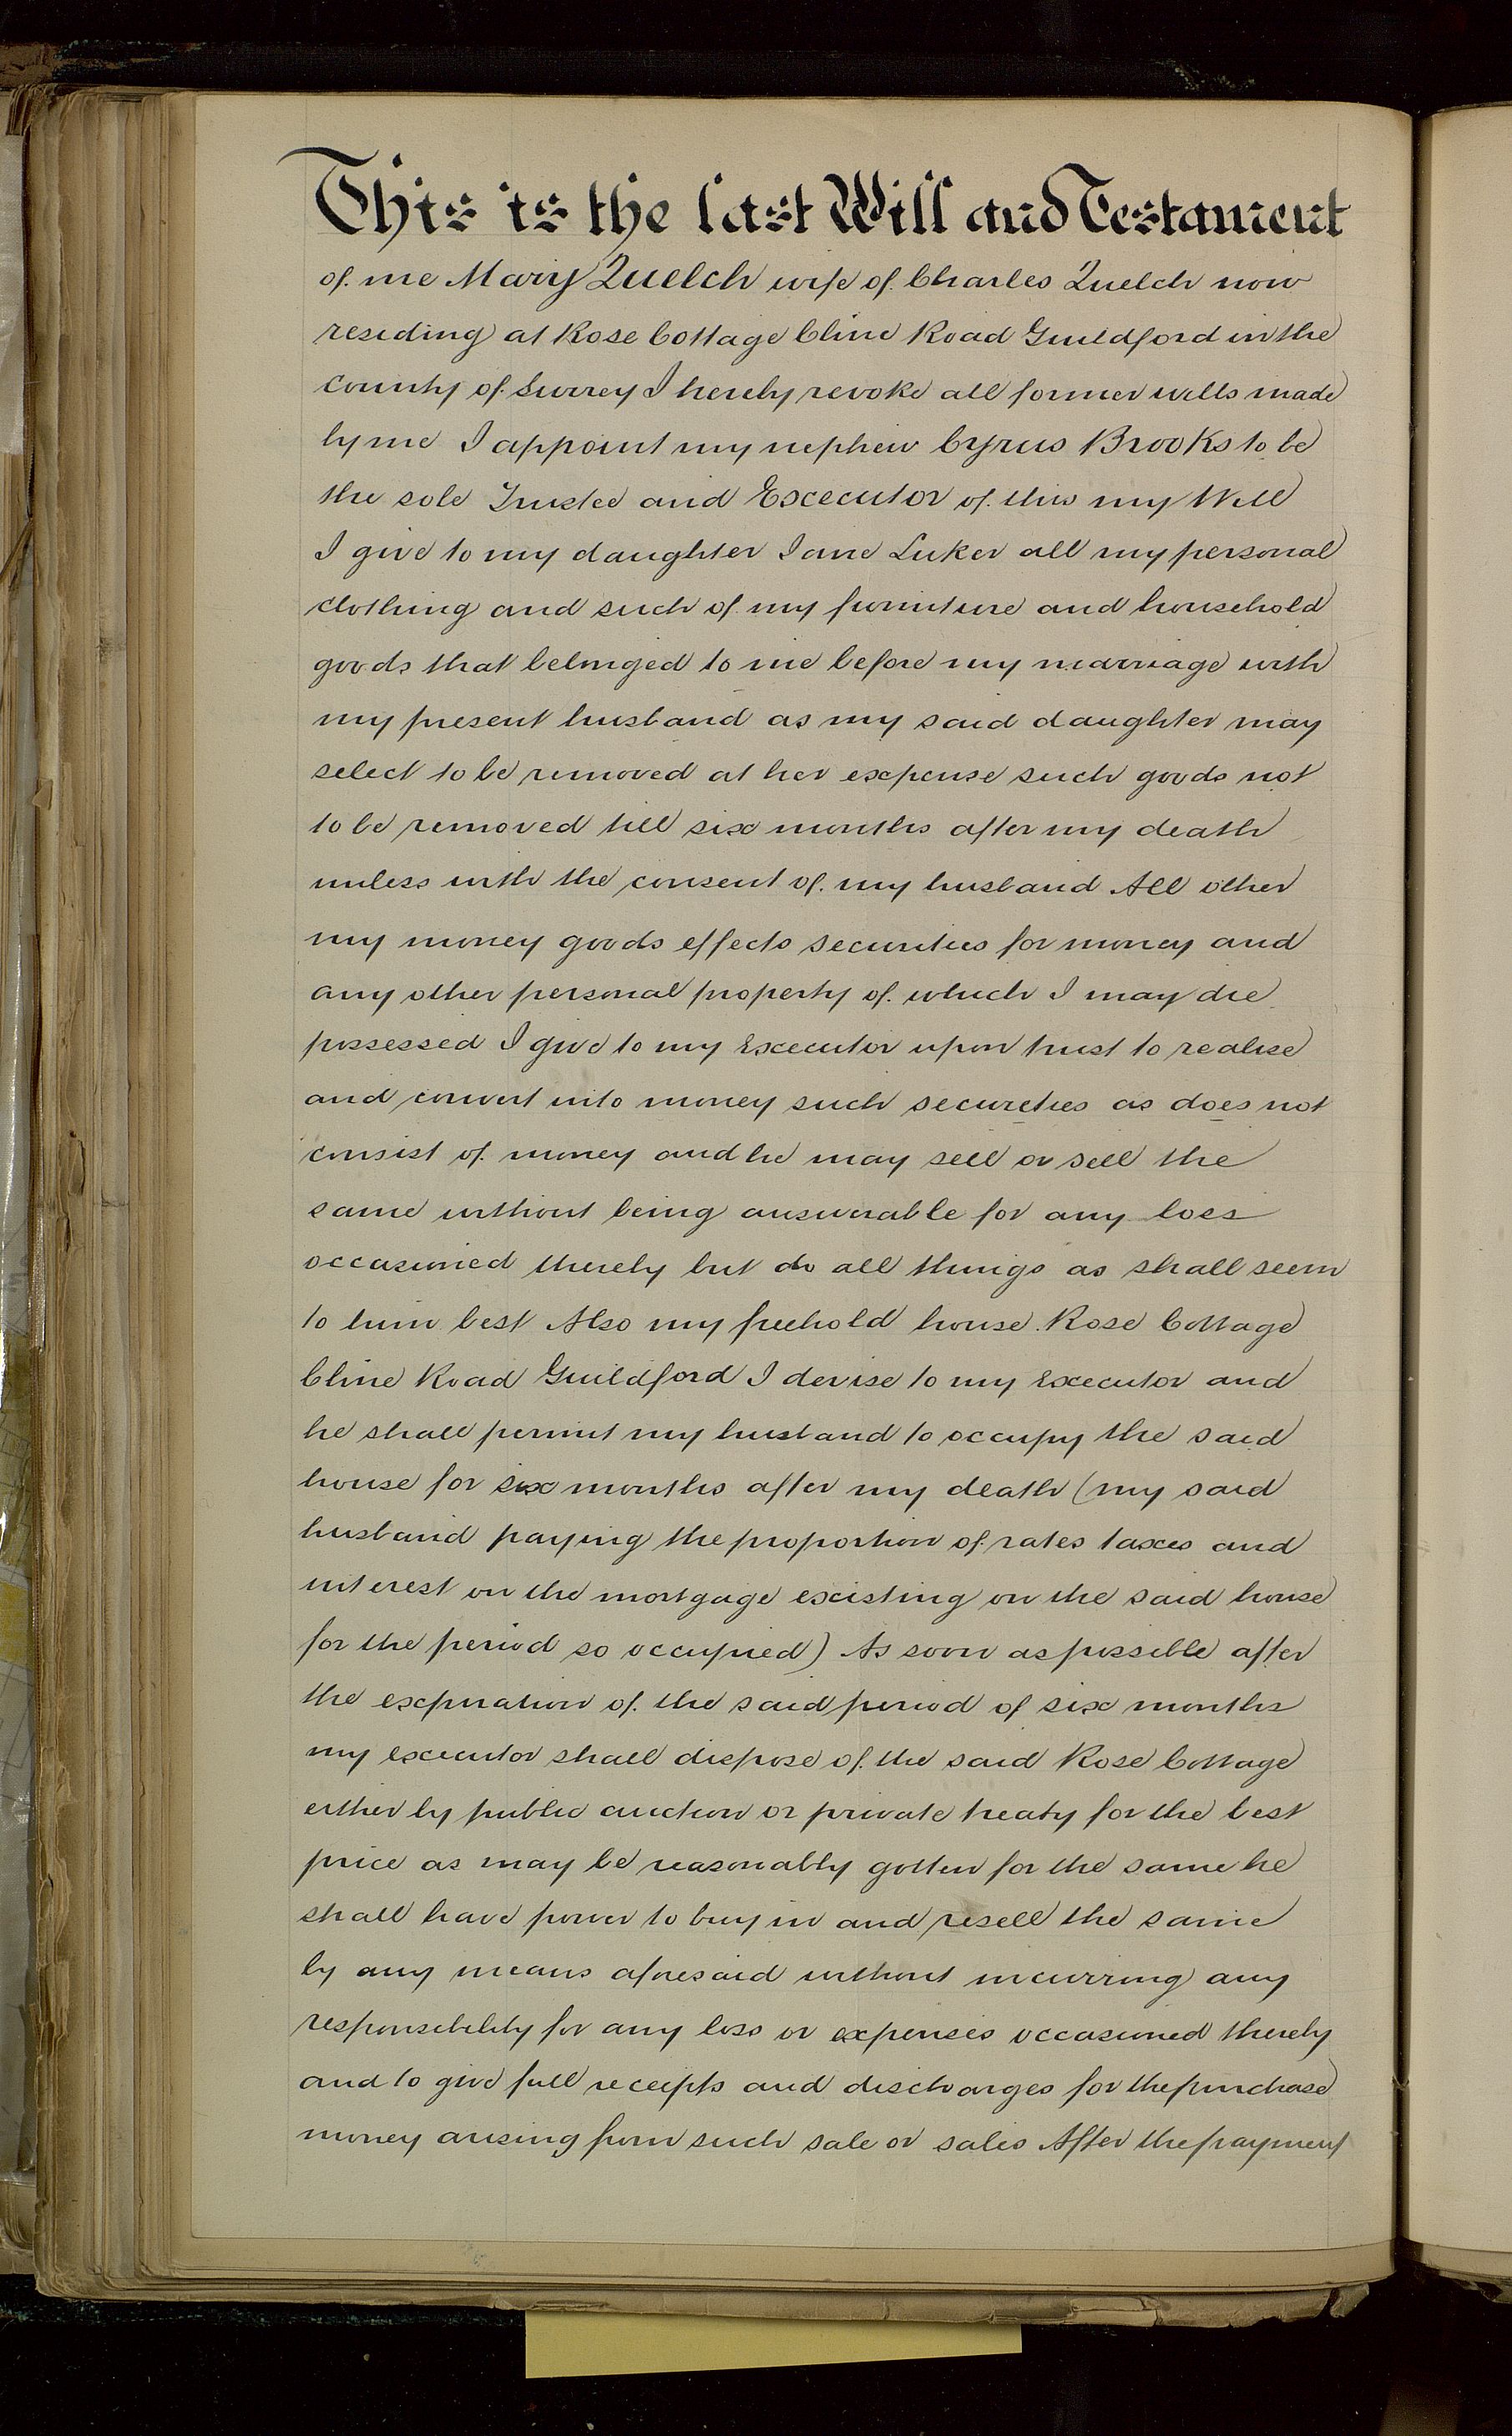 This is the last Will and Testament
of me Mary Quelch wife of Charles Quelch now
residing at Rose Cottage Cline Road Guildford in the
county of Surrey I hereby revoke all former wills made
by me I appoint my nephew Cyrus Brooks to be
the sole Trustee and Executor of this my Will
I give to my daughter Jane Luker all my personal
clothing and such of my furniture and household
goods that belonged to me before my marriage with
my present husband as my said daughter may
select to be removed at her expense such goods not
to be removed till six months after my death
unless with the consent of my husband All other
my money goods effects securities for money and
any other personal property of which I may die
possessed I give to my Executor upon trust to realise
and convert into money such secureties as does not
consist of money and he may sell or sell the
same without being answerable for any loss
occasioned thereby but do all things as shall seem
to him best Also my freehold house Rose Cottage
Cline Road Guildford I devise to my Executor and
he shall permit my husband to occupy the said
house for six months after my death (my said
husband paying the proportion of rates taxes and
interest on the mortgage existing on the said house
for the period so occupied) As soon as possible after
the expiration of the said period of six months
my executor shall dispose of the said Rose Cottage
either by public auction or private treaty for the best
price as may be reasonably gotten for the same he
shall have power to buy in and resell the same
by any means aforesaid without incurring any
responsibility for any loss or expenses occasioned thereby
and to give full receipts and discharges for the purchase
money arising from such sale or sales After the payment